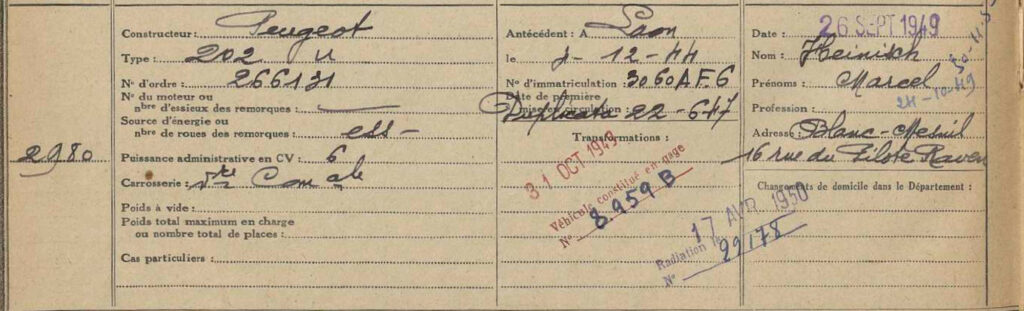 2980
Constructeur : Peugeot
Type : 202 U
N° d'ordre : 266131
N° du moteur ou
nbre d'essieux des remorques :
Source d'énergie ou
nbre de roues des remorques : ess
Puissance administrative en CV : 6
Carrosserie : Com ale
Poids à vide :
Poids total maximum en charge
ou nombre total de places :
Cas particuliers :
Antécédent : A Laon
le 7-12-44
N° d'immatriculation : 3060AF6
Date de première
mise en circulation :
Duplicata 22-6-47
Transformations :
31 OCT 1949
Véhicule constitué en gage
N° 8959 B
17 AVR 1950
Radiation le
N° 29178
Date : 26 SEPT 1949
Nom : Heinisch
Prénoms : Marcel
24-10-49
Profession :
Adresse : Blanc-Mesnil
16 rue du Pilote Raven
Changements de domicile dans le Département :